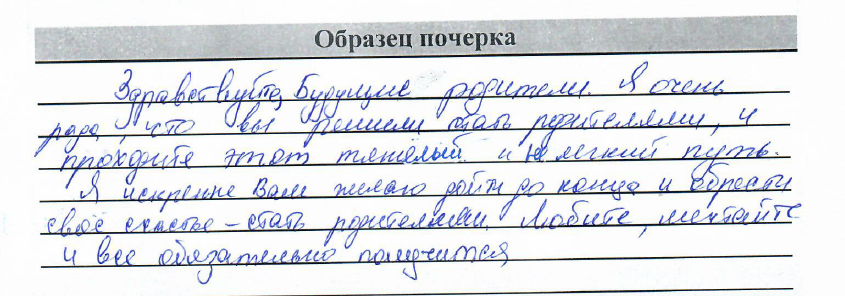 Образец почерка
Здравствуйте, Будущие родители. Я очень
рада, что вы решили стать родителями, и
проходите этот тяжелый и не легкий путь.
Я искренне Вам желаю дойти до конца и обрести
своё счастье – стать родителями. Любите, мечтайте
и все обязательно получится